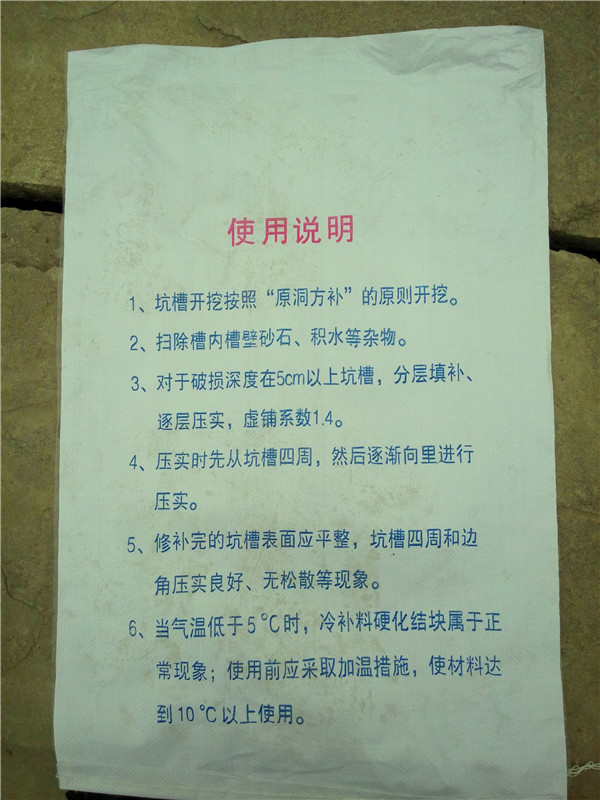 使用说明
1、坑槽开挖按照“原洞方补”的原则开挖。
2、扫除槽内槽壁砂石、积水等杂物。
3、对于破损深度在5cm以上坑槽，分层填补、
逐层压实，虚铺系数1.4。
4、压实时先从坑槽四周，然后逐渐向里进行
压实。
5、修补完的坑槽表面应平整，坑槽四周和边
角压实良好、无松散等现象。
6、当气温低于5℃时，冷补料硬化结块属于正
常现象；使用前应采取加温措施，使材料达
到10℃以上使用。